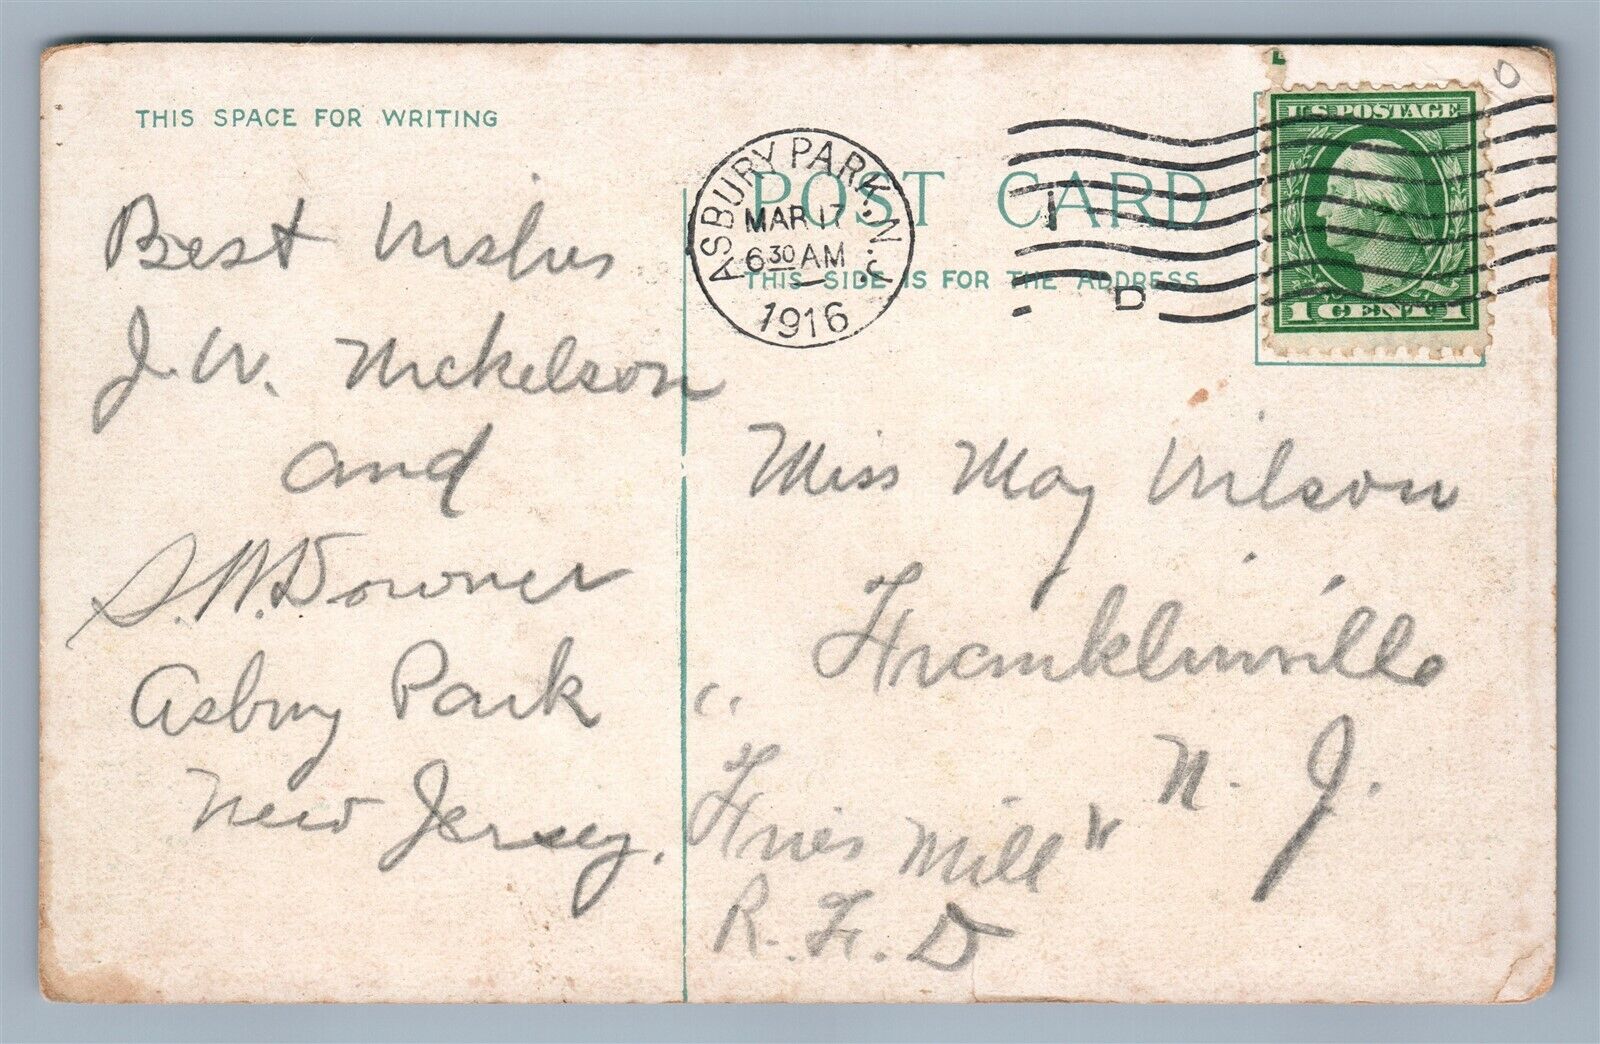 THIS SPACE FOR WRITING
Best Wishes
J. W. Nickelson
and
S. W. Downer
Asbury Park
New Jersey.
ASBURY PARK, N.J.
MAR 17
6 30 AM
1916
POST CARD
THIS SIDE IS FOR THE ADDRESS
1
D
U.S. POSTAGE
1 CENT 1
Miss May Wilson
Franklinville
N. J.
"Fries Mill"
R. F. D